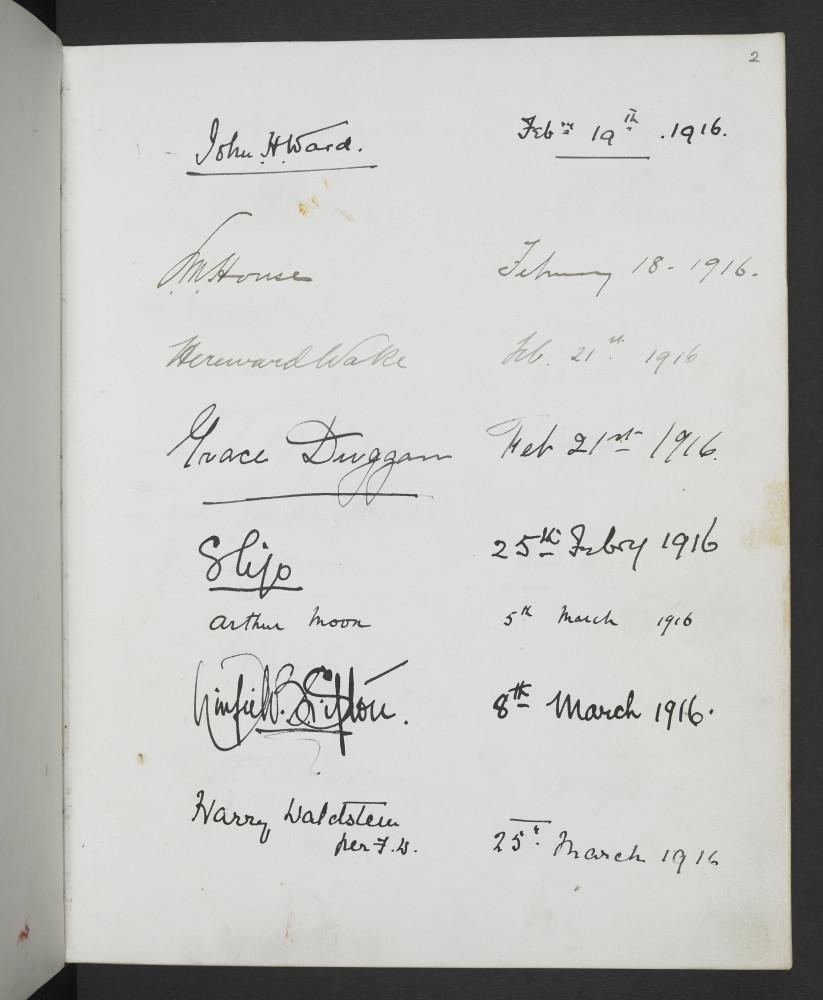 2
John H. Ward. Feby 19th . 1916.
M. House February 18 - 1916.
Hereward Wake Feb. 21st. 1916
Grace Duggan Feb 21st 1916.
Sligo 25th Febry 1916
Arthur Moon 5th March 1916
Winfield B. Sifton. 8th March 1916.
Harry Waldstein
per F.W. 25th March 1916